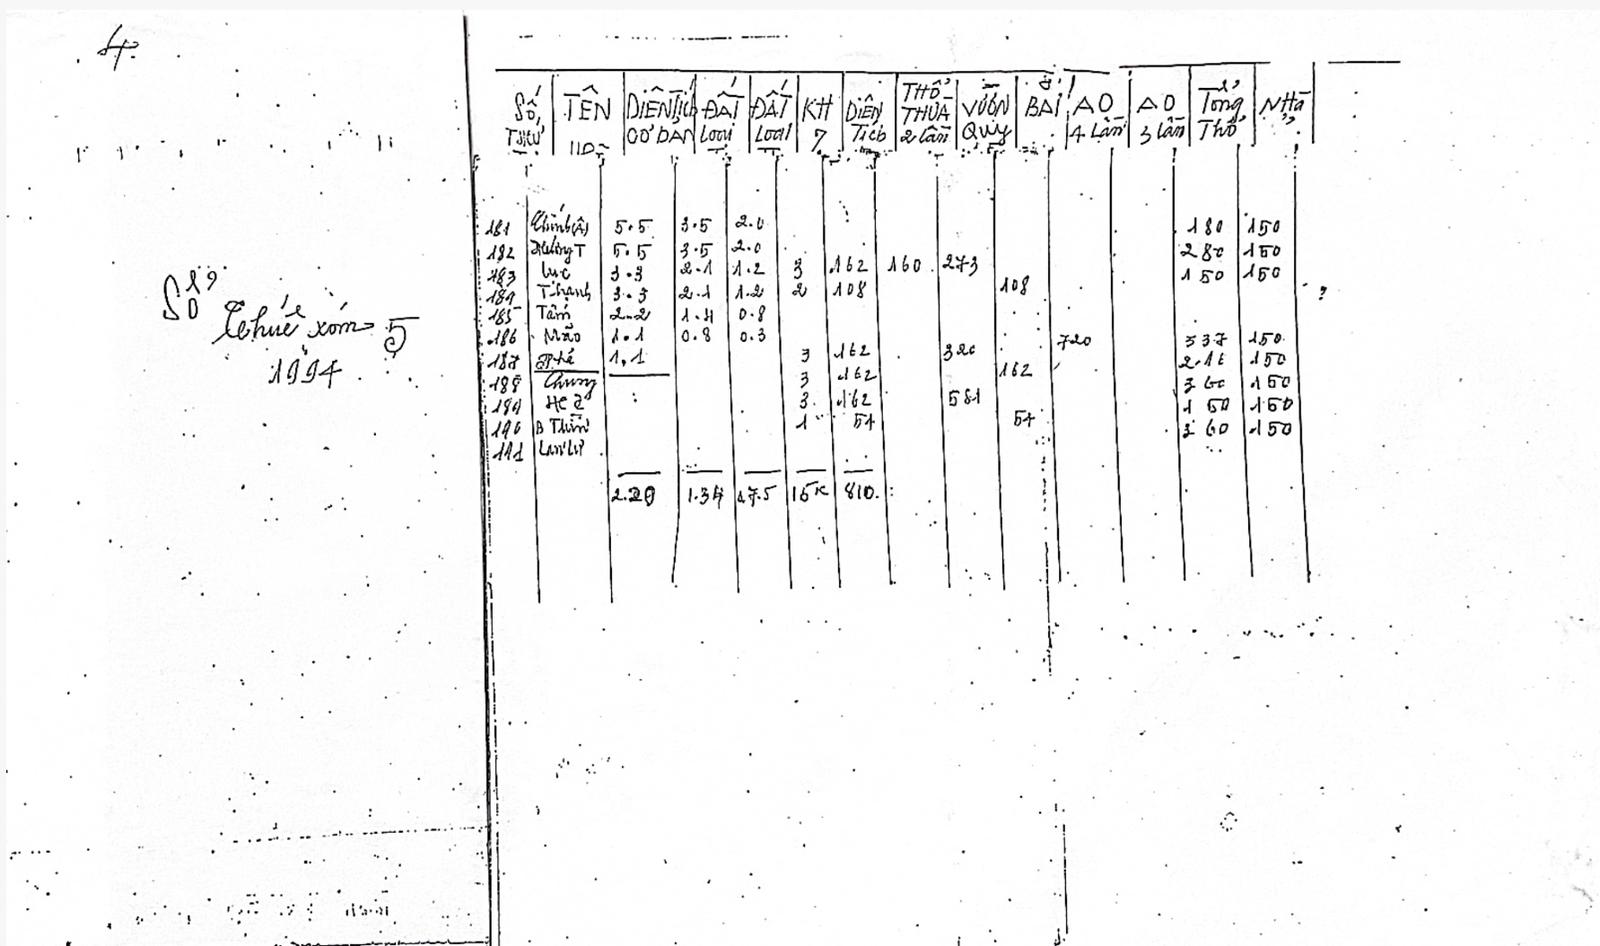 4.
Sổ
Thuế xóm 5
1994
SỐ TÊN DIỆN TÍCH ĐẤT ĐẤT KH DIỆN THỔ VƯỜN BÃI AO AO Tổng NHÀ
CƠ BẢN Loại Loại 7 Tích THỪA Qũy 4 Lần 3 lần Thổ
2 lần
181 5.5 3.5 2.0 180 150
182 5.5 3.5 2.0 280 150
183 Lực 3.3 2.1 1.2 3 162 160 273 150 150
184 Thạnh 3.3 2.1 1.2 2 108 108
185 Tâm 2.2 1.4 0.8
186 Mão 1.1 0.8 0.3 720 337 150
187 1,1 3 162 320 150
188 Chung 3 162 162 360 150
189 3 162 581 150 150
190 B Thìn 1 54 54 360 150
191
2.20 1.34 810